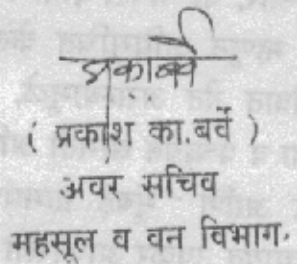 प्रकाबर्वे
( प्रकाश का.बर्वे )
अवर सचिव
महसूल व वन विभाग.